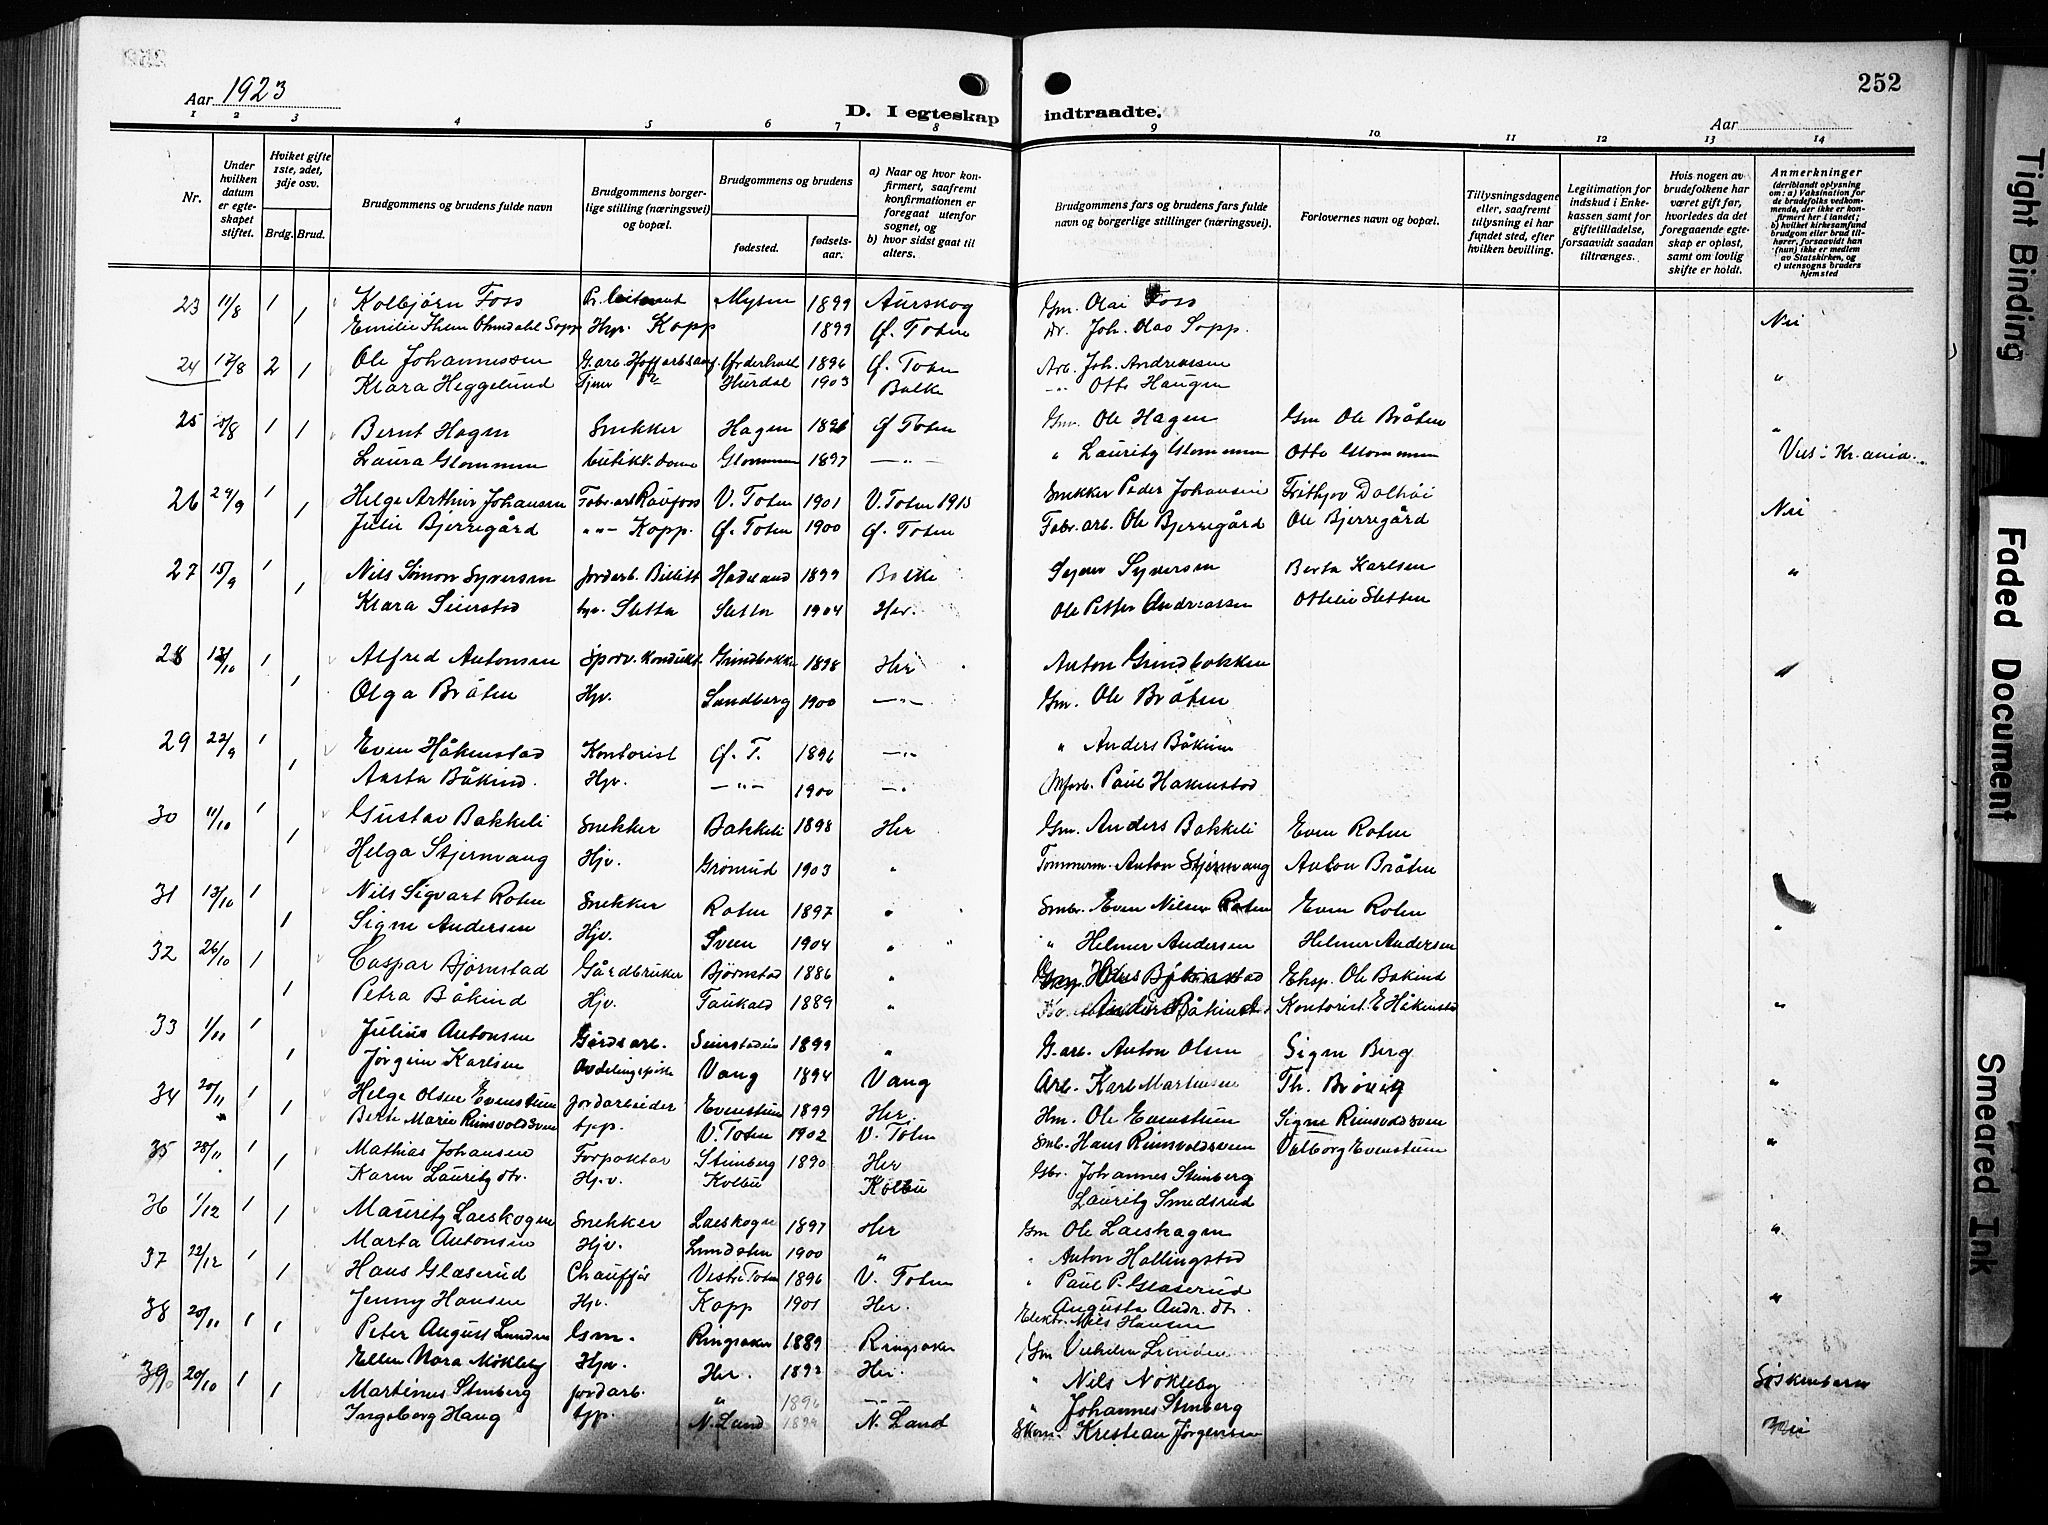 252
Aar 1923
D. I egteskap indtraadte.
Aar
1 2 3 4 5 6 7 8 9 10 11 12 13 14
Nr.
Under hvilken datum er egteskapet stiftet.
Hvilket gifte 1ste, 2det, 3dje osv.
Brdg. Brud.
Brudgommens og brudens fulde navn
Brudgommens borgerlige stilling (næringsvei) og bopæl.
Brudgommens og brudens
fødested. fødselsaar.
a) Naar og hvor konfirmert, saafremt konfirmationen er foregaat utenfor sognet, og
b) hvor sidst gaat til alters.
Brudgommens fars og brudens fars fulde navn og borgerlige stillinger (næringsvei).
Forlovernes navn og bopæl.
Tillysningsdagene eller, saafremt tillysning ei har fundet sted, efter hvilken bevilling.
Legitimation for indskud i Enkekassen samt for giftetilladelse, forsaavidt saadan tiltrænges.
Hvis nogen av brudefolkene har været gift før, hvorledes da det foregaaende egteskap er opløst, samt om lovlig skifte er holdt.
Anmerkninger
(deriblandt oplysning om: a) Vaksination for de brudefolks vedkommende, der ikke er konfirmert her i landet; b) hvilket kirkesamfund brudgom eller brud tilhører, forsaavidt han (hun) ikke er medlem av Statskirken, og c) utensogns bruders hjemsted
23 11/8 1 Kolbjørn Foss Mysen 1899 Aurskog Gm. Olai Foss
1 Emilie Sopp Hjv. Kapp 1899 Ø. Toten Joh. Olav Sopp. Nei
24 17/8 2 Ole Johannessen Hurdal 1896 Ø. Toten Arb. Joh. Andreassen
1 Klara Heggelund Hurdal 1903 Balke " Otto Haugen "
25 1 Bernt Hagen Snekker Hagen Ø Toten Gm. Ole Hagen Gm Ole Bråten
1 Laura Glommen butikk.dame Glommen 1897 — " — " Lauritz Glommen Otto Glommen
26 1 Helge Arthur Johansen Fabr.arb Raufoss V. Toten 1901 V. Toten 1915 Snekker Peder Johansen Nei
1 Julie Bjerregård " — Kapp. Ø. Toten 1900 Ø. Toten Fabr.arb. Ole Bjerregård Ole Bjerregård
27 15/9 1 Nils Simon Syversen Jordarb. Hadeland 1899 Balke Syver Syversen Berta Karlsen "
1 Klara Seierstad Sletta Sletta 1904 Her. Ole Petter Andreassen Ottilie Sletten
28 13/10 1 Alfred Antonsen Sporv. Kondukt. Grindbakken 1898 Her Anton Grindbakken
1 Olga Bråten Hjv. Sandberg 1900 — " — Gm. Ole Bråten
29 22/9 1 Even Håkenstad Kontorist Ø. T. 1896 — " — " Anders Båkind
1 Aasta Båkind. Hjv. — " — 1900 — " Paul Hakenstad
30 11/10 1 Gustav Bakkeli Snekker Bakkeli 1898 Her Gm. Anders Bakkeli Even Roten
1 Helga Stjernvang Hjv. Grønrud 1903 " Tømmerm. Anton Stjernvang Anton Bråten
31 13/10 1 Nils Sigvart Roten Snekker Roten 1897 " Smbr. Even Nilsen Roten Even Roten
1 Signe Andersen Hjv. Sveen 1904 " " Helmer Andersen Helmer Andersen "
32 26/10 1 Caspar Bjørnstad Gårdbruker Bjørnstad 1886 " Bjørnstad Eksp. Ole Bakind
1 Petra Båkind Hjv. Taukald 1889 " Anders Båkind Kontorist E Håkenstad "
33 1/11 1 Julius Antonsen Gårdsarb. 1899 " G. arb. Anton Olsen Signe Berg
1 Jørgine Karlsen Vang 1894 Vang Arb. Karl Martinsen Th. Brovig "
34 20/11 1 Helge Olsen Evenstuen Jordarbeider Evenstuen 1899 Her. Hm. Ole Evenstuen Signe Reinsvoldsveen
1 Berte Marie Reinsvoldsveen tjp. V. Toten 1902 V. Toten Smbr. Hans Reinsvoldsveen Valborg Evenstuen "
35 28/11 1 Mathias Johansen Forpakter Stenberg 1890 Her Gbr. Johannes Stenberg
1 Karen Lauritz dtr. Hjv. Kolbu Kolbu Lauritz Smedsrud
36 1/12 1 Mauritz Laeskogen Snekker Laeskogn 1897 Her Gm Ole Laeskogen "
1 Marta Antonsen Hjv. Lundsten 1900 " " Anton Hallingstad
37 22/12 1 Hans Glæserud Chauffør Vestre Toten 1896 V. Toten " Paul P. Glæserud
Augusta Andr. dtr.
1 Jenny Hansen Hjv. Kapp 1901 Her. Elektr. Nils Hansen "
38 20/11 1 Peter August Lunden Gm. Ringsaker 1889 Ringsaker Gm
1 Ellen Nora Nøkleby Hjv. Her. 1892 Her. " Nils Nøkleby
39 20/10 1 Martinus Stenberg jordarb. " 1896 — " — " Johannes Stenberg Søskenbarn
1 Ingeborg Haug tjp. N. Land 1894 N. Land Kristian Jørgensen Nei
Tight Binding
Faded Document
Smeared Ink